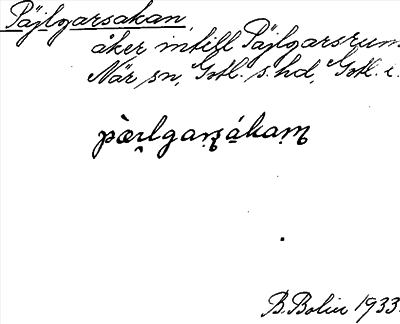 Päjlgarsakan,
åker intill Päjlgarsrum
När sn, Gotl. s. hd, Gotl. l.
pæ̀rlgarsákam
B. Bolin 1933.